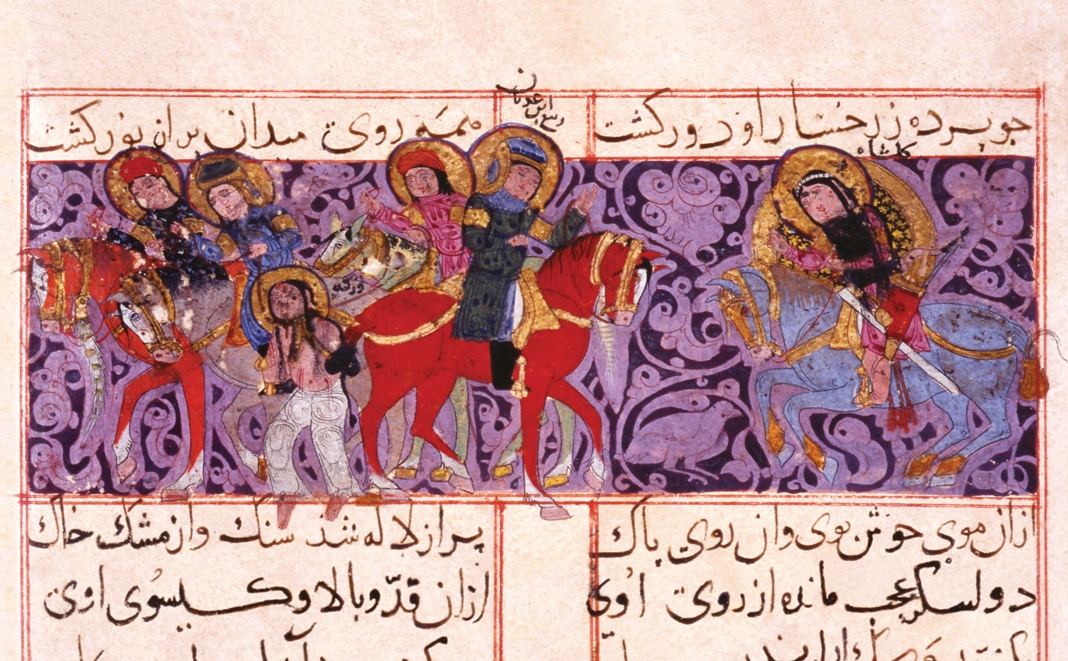 جو برده ز رخسار او دور کشت همه روی میدان بر از نور کشت
ابن عدنان
کلشاه
ورقه
ازان موی خوش بوی وان روی باک بر از لاله شد سنک واز مشک خاک
دو لسکر عجب مانده از روی اوی ازان قدّ و بالا و کیسوی اوی